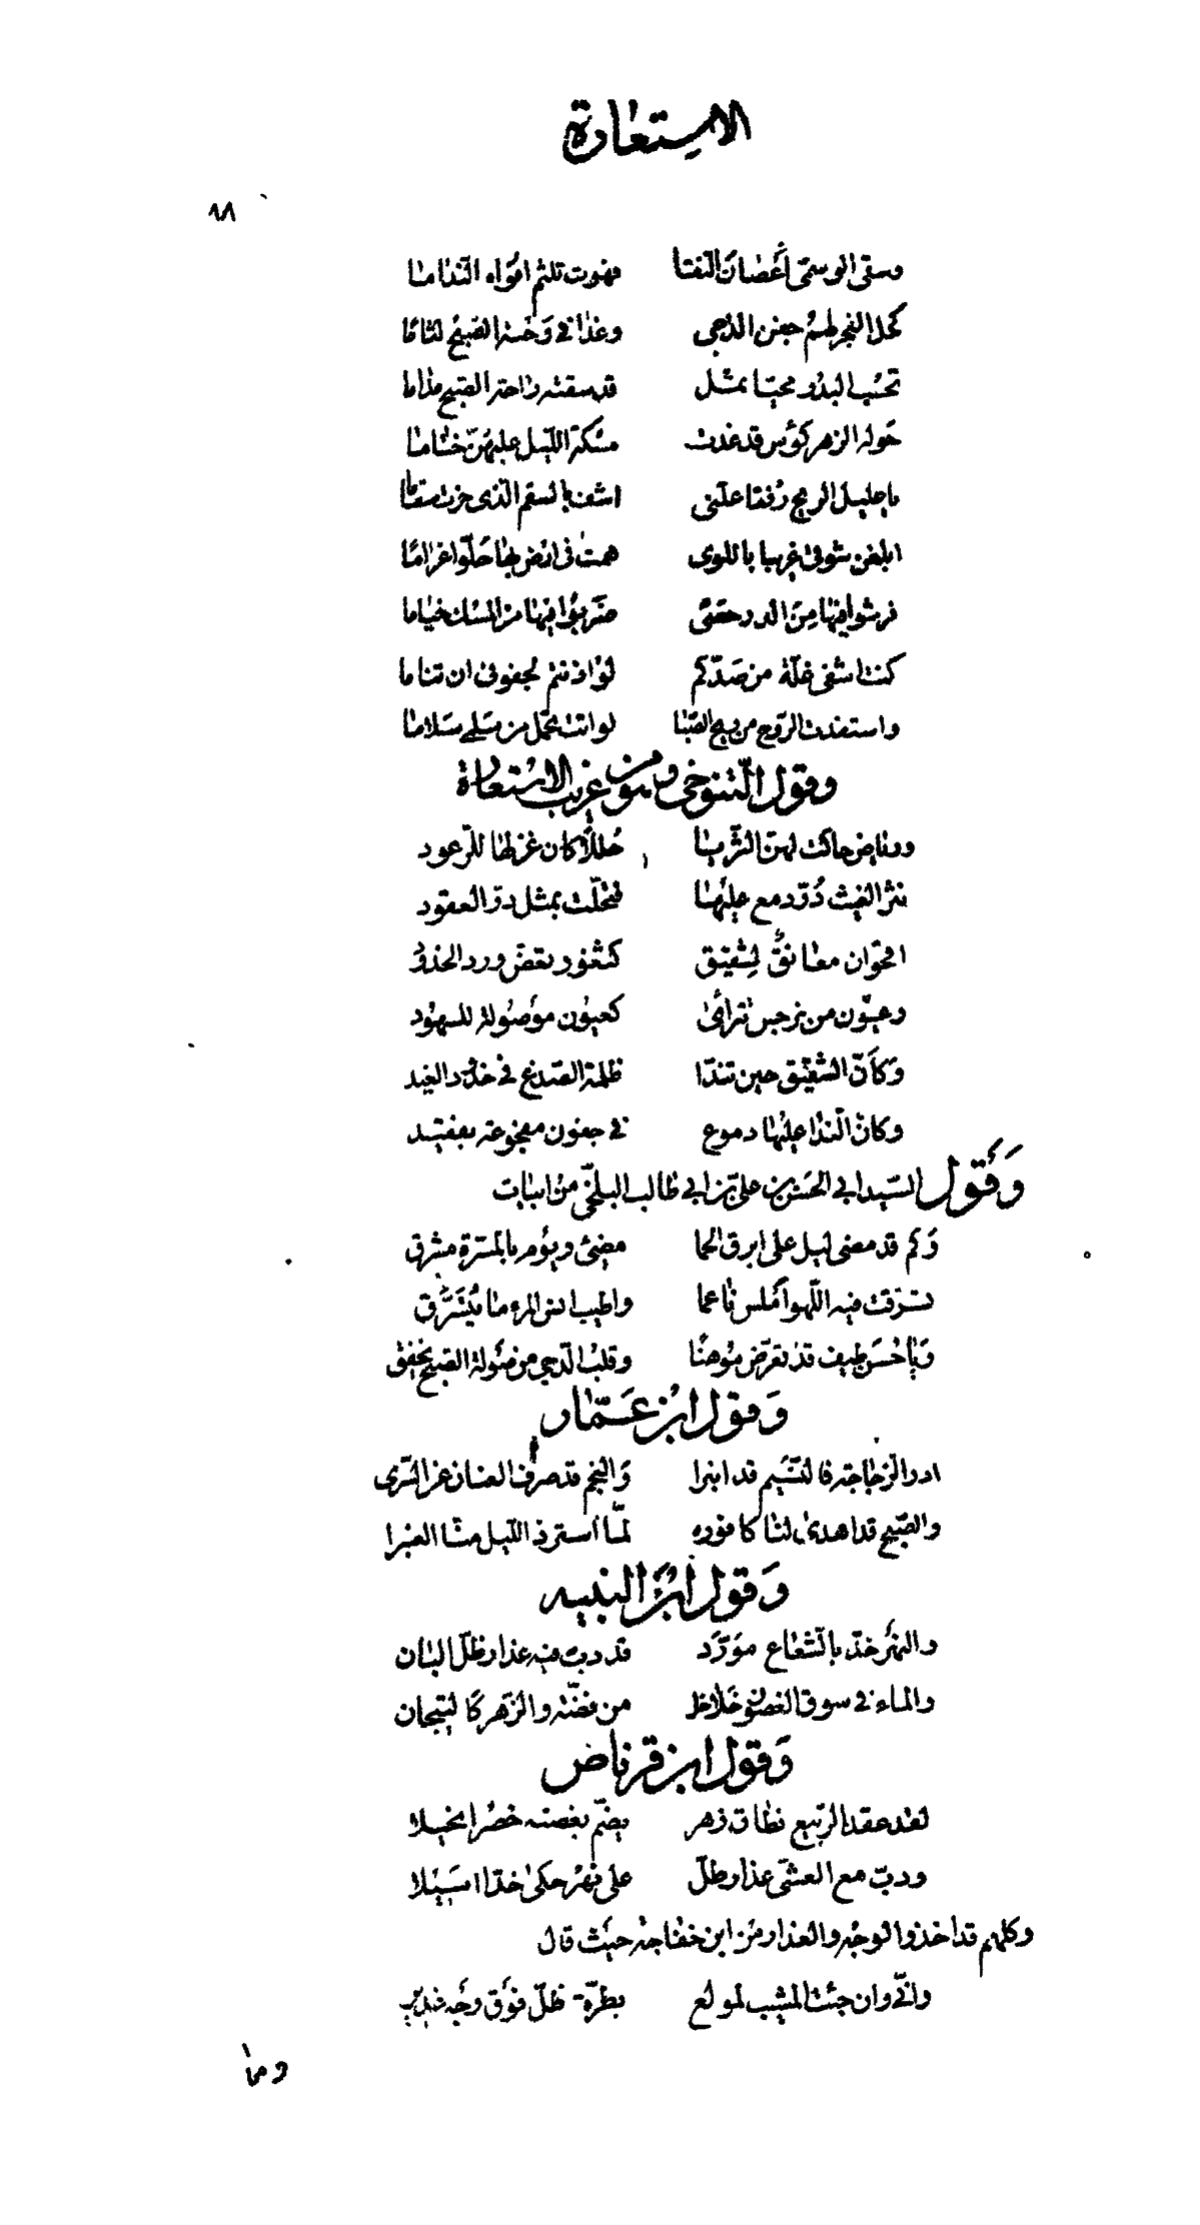 الاستعارة
٨٨
وسقى الوسمى أغصان النقا فهوت تلثم افواه الندامى
كحل الفجر لهم جفن الدجى وغدا في وجنة الصبح لثاما
تحسب البدر محيا ثمل قد سقته راحة الصبح مداما
حوله الزهر كؤس قد غدت مسكة الليل عليهن ختاما
يا عليل الريح رفقا علنى اشف بالسقم الذى حزت سقاما
ابلغن شوقى غريبا باللوى همت فى ارض بها حلوا غراما
فرشوا فيها من الدر حصى ضربوا فيها من المسك خياما
كنت اشفى غلة من صدكم لو اذنتم لجفونى ان تناما
واستفدت الروح من ريح الصبا لو اتت تحمل من سلمى سلاما
وقول التنوخى وهو من غريب الاستعارة
ورياض حاكت لهن الثريا حللا كان غزلها للرعود
نثر الغيث در دمع عليها فتحلت بمثل در العقود
اقحوان معانق لشقيق كثغور تعض ورد الخدود
وعيون من نرجس تتراءى كعيون موصولة للسهود
وكأن الشقيق حين تبدا ظلمة الصدغ في خدود الغيد
وكان الندا عليها دموع في جفون مفجوعة بفقيد
وقول السيد ابي الحسن بن على بن ابي طالب البلخى من ابيات
وكم قد مضى ليل على ابرق الحما مضئ ويوم بالمسرة مشرق
تسرقت فيه اللهو أملس ناعما واطيب انس المرء ما يتسرق
ويا حسن طيف قد تعرض موهنا وقلب الدجى من صولة الصبح يخفق
وقول ابن عمار
ادر الزجاجة فالنسيم قد انبرا والنجم قد صرف العنان عن السرى
والصبح قد اهدى لنا كافوره لما استرد الليل منا العنبرا
وقول ابن النبيه
والنهر خد بالشعاع مورد قد دب فيه عذار ظل البان
والماء في سوق الغصون خلاخل من فضة والزهر كالتيجان
وقول ابن قرناص
لقد عقد الربيع نطاق زهر يضم بغصنه خصرا نحيلا
ودب مع العشى عذار ظل على نهر حكى خدا اسيلا
وكلهم قد اخذوا الوجه والعذار من ابن خفاجة حيث قال
وانى وان جئت المشيب لمولع بطرة ظل فوق وجه غدير
وما